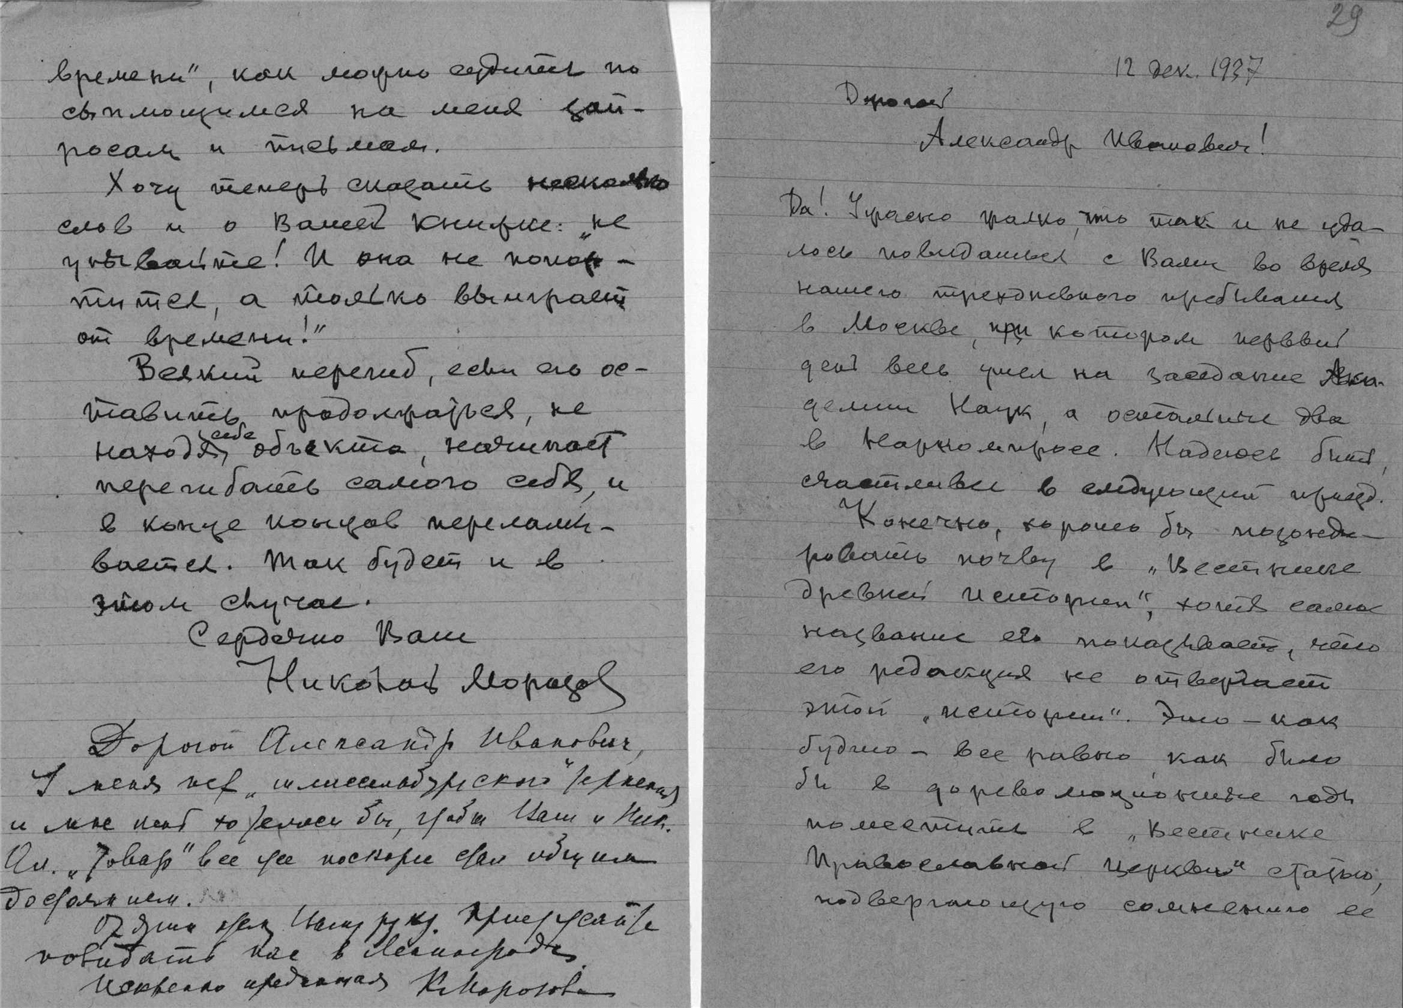 времени", как можно судить по
сыплющимся на меня зап-
росам и письмам.
Хочу теперь сказать несколько
слов и о Вашей книжке: "не
унывайте! И она не попор-
тится, а только выиграет
от времени!"
Всякий перегиб, если его ос-
тавить продолжаться, не
находя себе объекта, начинает
перегибать самого себя, и
в конце концов переламы-
вается. Так будет и в
этом случае.
Сердечно Ваш
Николай Морозов
Дорогой Александр Иванович,
У меня нет "шлиссельбургского" терпения
и мне хотелось бы, чтобы Ваш и Ник.
Ал. "товар" все же поскорее стал общим
достоянием.
Вашу руку. Приезжайте
повидать нас в Ленинград.
Искренно преданная К. Морозова
29
12 дек. 1937
Дорогой
Александр Иванович!
Да! Ужасно жалко, что так и не уда-
лось повидаться с Вами во время
нашего трехдневного пребывания
в Москве, при котором первый
день весь ушел на заседание Ака-
демии Наук, а остальные два
в Наркомпросе. Надеюсь быть
счастливее в следующий приезд.
Конечно, хорошо бы позонди-
ровать почву в "Вестнике
древней истории", хотя самое
название его показывает, что
его редакция не отвергает
этой "истории". Это – как
будто – все равно, как было
бы в дореволюционные годы
поместить в "Вестнике
Православной Церкви" статью,
подвергающую сомнению ее